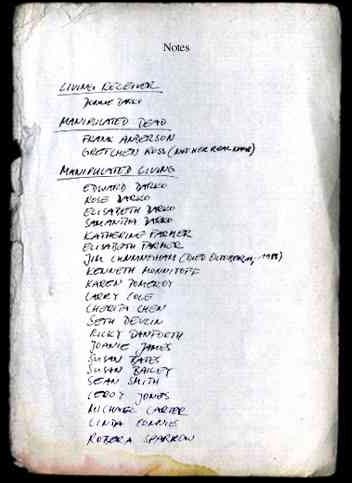 Notes
LIVING RECEIVER
DONNIE DARKO
MANIPULATED DEAD
FRANK ANDERSON
GRETCHEN ROSS (NOT HER REAL NAME)
MANIPULATED LIVING
EDWARD DARKO
ROSE DARKO
ELISABETH DARKO
SAMANTHA DARKO
KATHERINE FARMER
ELISABETH FARMER
JIM CUNNINGHAM (DIED OCTOBER, 1988)
KENNETH MONNITOFF
KAREN POMEROY
LARRY COLE
CHERITA CHEN
SETH DEVLIN
RICKY DANFORTH
JOANIE JAMES
SUSAN BATES
SUSAN BAILEY
SEAN SMITH
LEROY JONES
MICHAEL CARTER
LINDA CONNIE
ROBERTA SPARROW